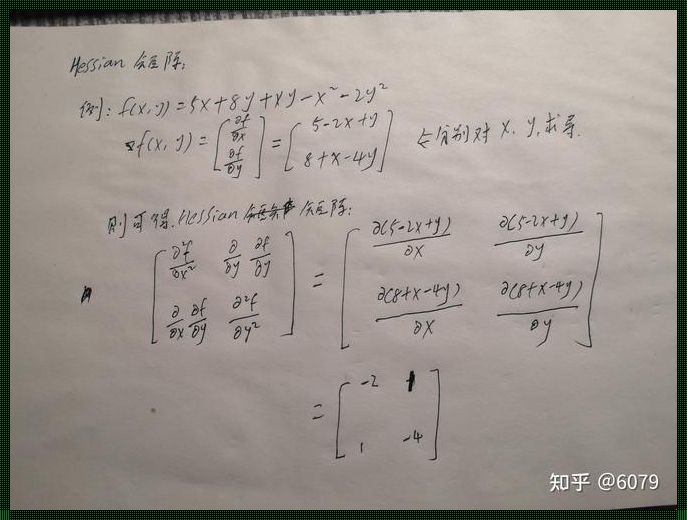 Hessian 矩阵:
例: f(x,y) = 5x+8y+xy-x²-2y²
∇f(x,y) = [∂f/∂x ; ∂f/∂y] = [5-2x+y ; 8+x-4y] ← 分别对 x, y 求导.
则可得 Hessian 矩阵:
[∂²f/∂x² , ∂/∂y ∂f/∂y ; ∂/∂x ∂f/∂y , ∂²f/∂y²] = [∂(5-2x+y)/∂x , ∂(5-2x+y)/∂y ; ∂(8+x-4y)/∂x , ∂(8+x-4y)/∂y]
= [-2 , 1 ; 1 , -4]
知乎 @6079